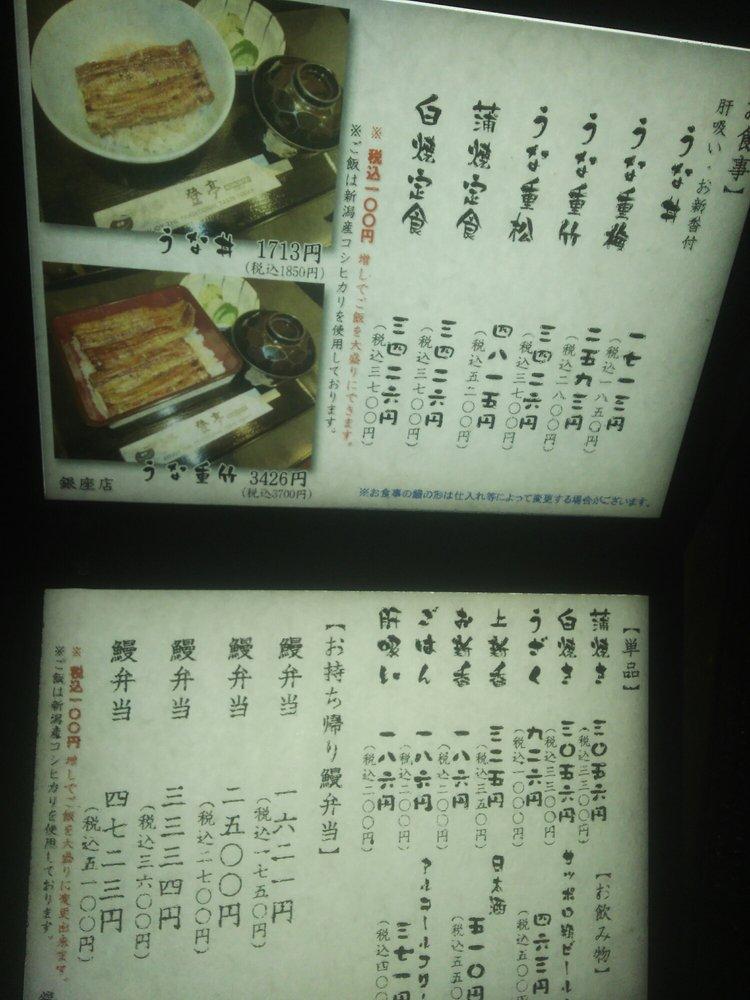 お食事】
肝吸い・お新香付
うな丼
一七一三円
(税込一八五〇円)
うな重梅
二五九三円
(税込二八〇〇円)
うな重竹
三四二六円
(税込三七〇〇円)
うな重松
四八一五円
(税込五二〇〇円)
蒲焼定食
三四二六円
(税込三七〇〇円)
白焼定食
三四二六円
(税込三七〇〇円)
※税込一〇〇円増しでご飯を大盛りにできます。
※ご飯は新潟産コシヒカリを使用しております。
登亭
うな丼 1713円
(税込1850円)
登亭
うな重竹 3426円
(税込3700円)
銀座店
※お食事の鰻の形は仕入れ等によって変更する場合がございます。
【単品】
蒲焼き
三〇五六円
(税込三三〇〇円)
白焼き
三〇五六円
(税込三三〇〇円)
うざく
九二六円
(税込一〇〇〇円)
上新香
三二五円
(税込三五〇円)
お新香
一八六円
(税込二〇〇円)
ごはん
一八六円
(税込二〇〇円)
肝吸い
一八六円
(税込二〇〇円)
【お飲み物】
サッポロ黒ビール
四六三円
(税込五〇〇円
日本酒
五一〇円
(税込五五〇
アルコールフリー
三七一円
(税込四〇〇
【お持ち帰り鰻弁当】
鰻弁当
一六二一円
(税込一七五〇円)
鰻弁当
二五〇〇円
(税込二七〇〇円)
鰻弁当
三三三四円
(税込三六〇〇円)
鰻弁当
四七二三円
(税込五一〇〇円)
※税込一〇〇円増しでご飯を大盛りに変更出来ます。
※ご飯は新潟産コシヒカリを使用しております。